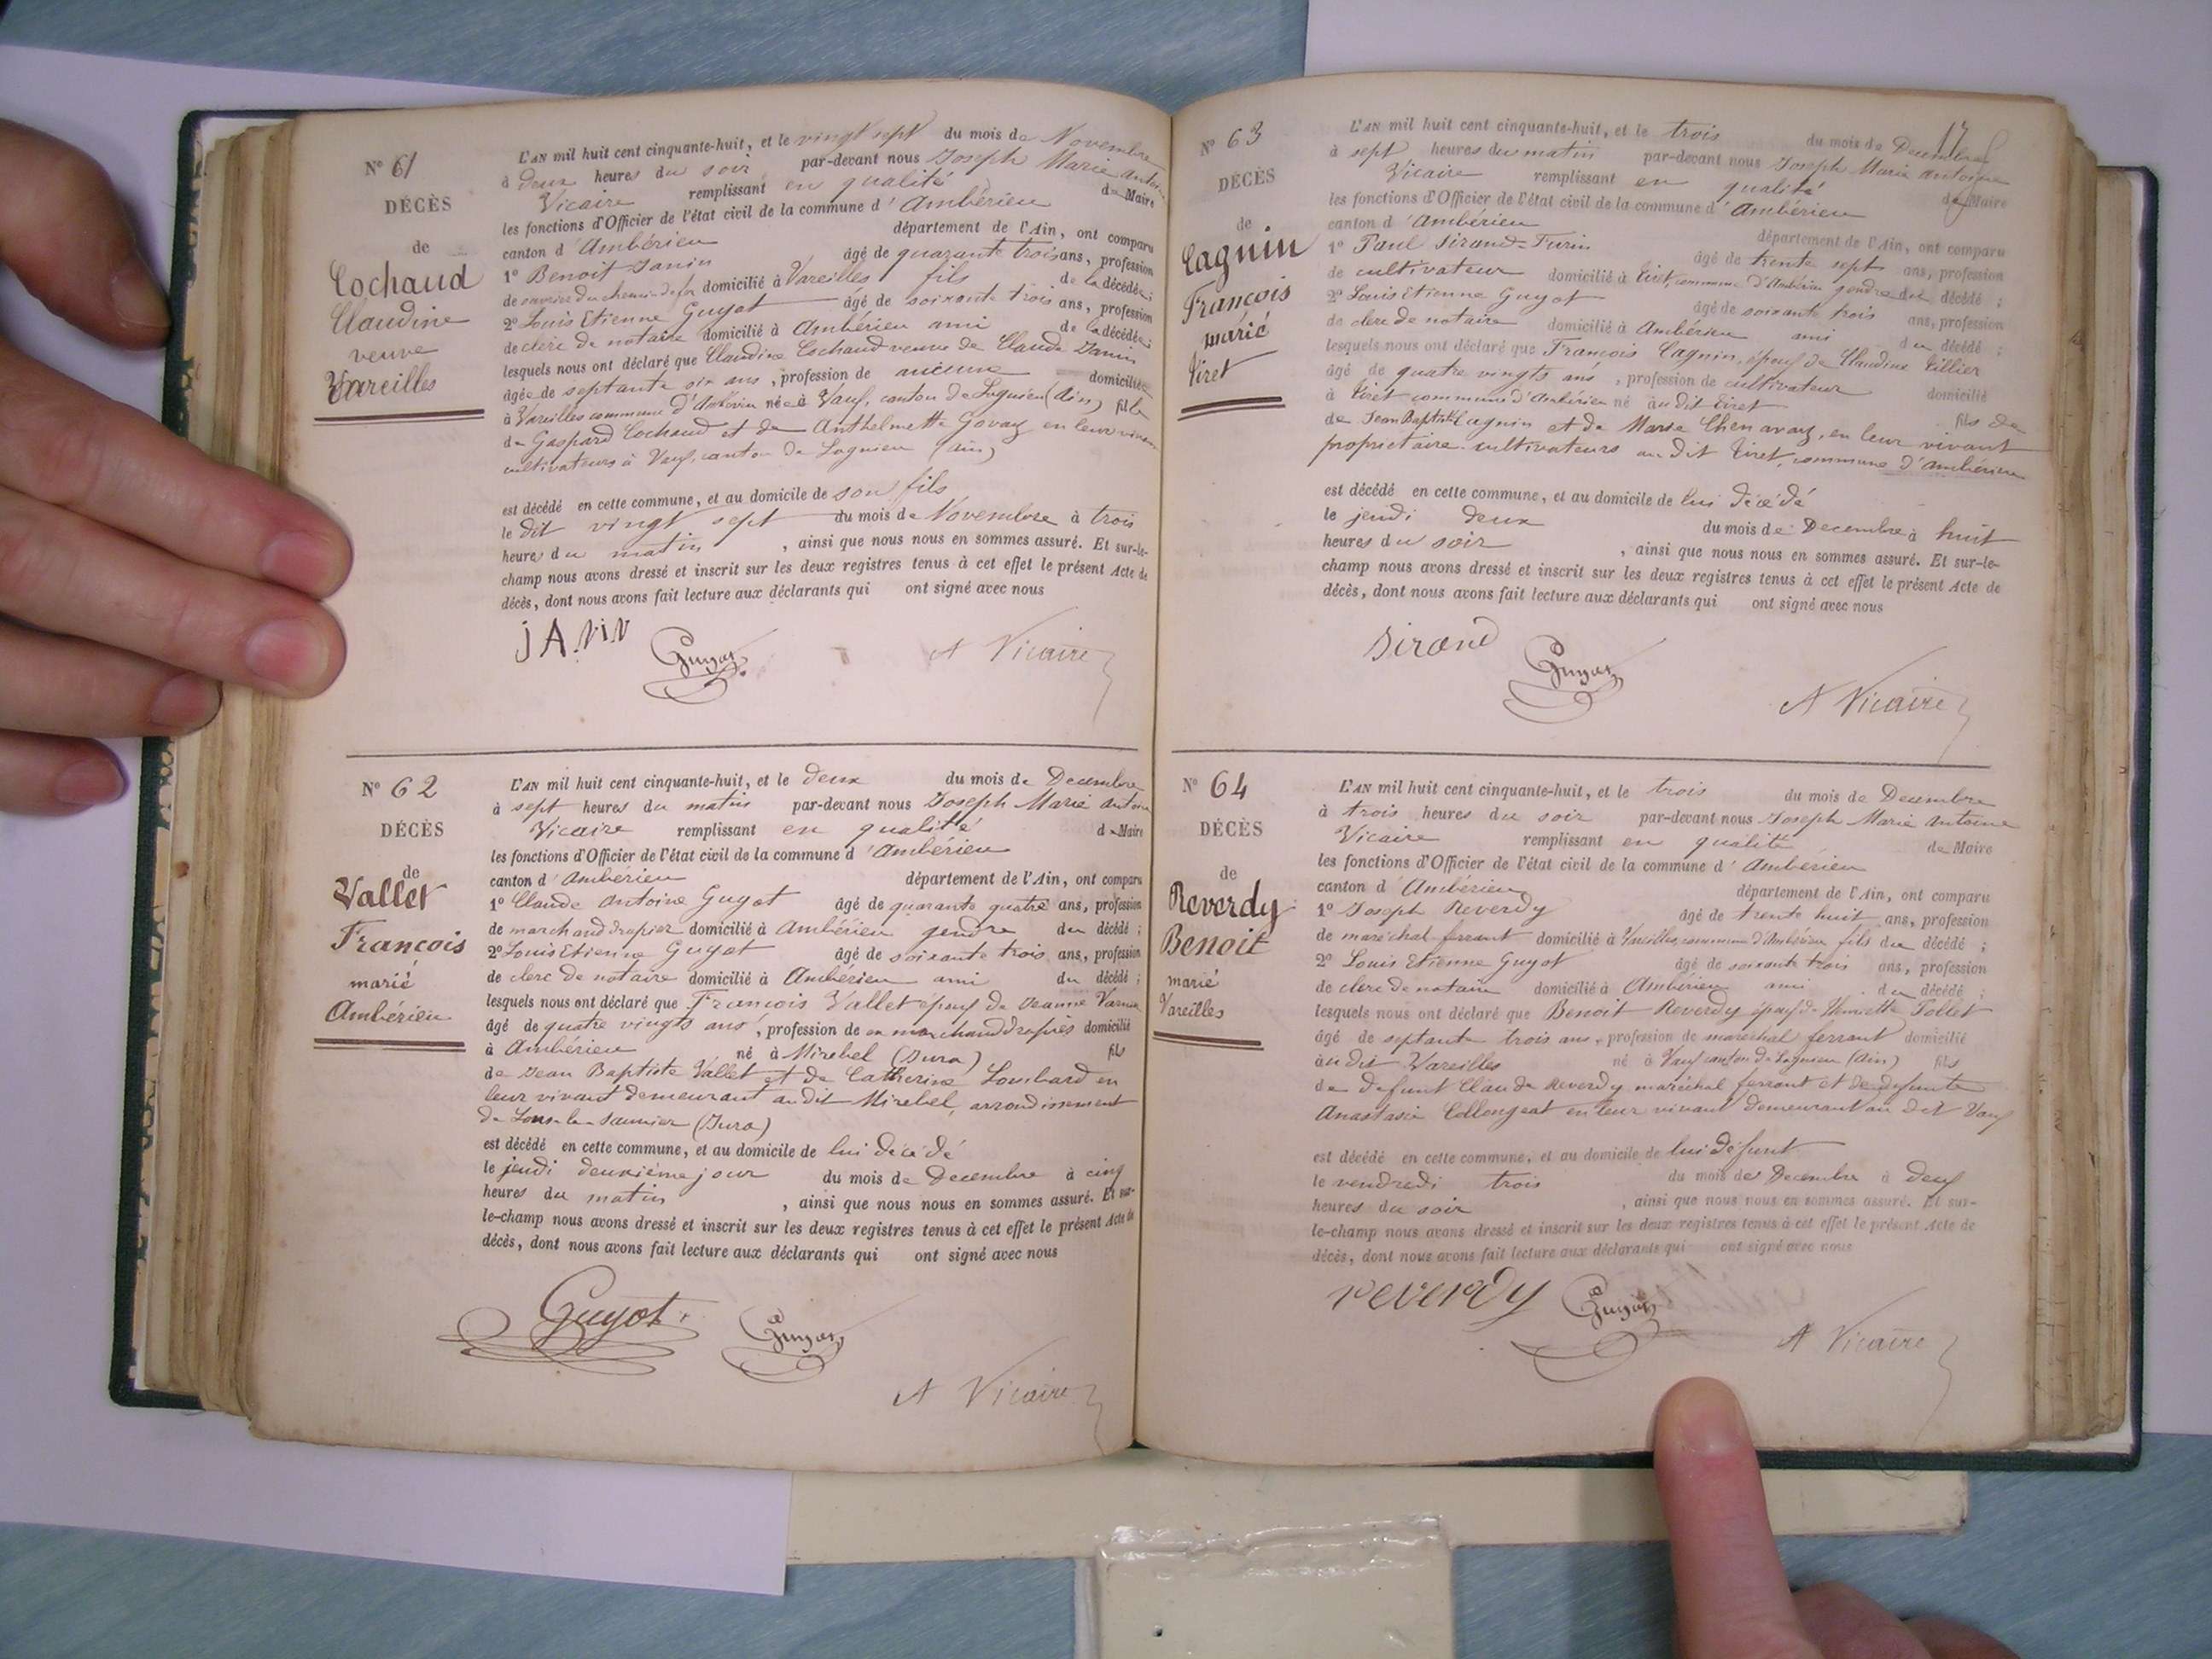 N° 61
DÉCÈS
de
Cochaud
Claudine
veuve
Vareilles
L'AN mil huit cent cinquante-huit, et le vingt sept du mois de Novembre
à deux heures du soir par-devant nous Joseph Marie Antoine
Vicaire remplissant en qualité de Maire
les fonctions d'Officier de l'état civil de la commune d'Ambérieu
canton d'Ambérieu département de l'Ain, ont comparu
1° Benoit Janin âgé de quarante trois ans, profession
de ouvrier du chemin de fer domicilié à Vareilles fils de la décédée;
2° Louis Etienne Guyot âgé de soixante trois ans, profession
de clerc de notaire domicilié à Ambérieu ami de la décédée;
lesquels nous ont déclaré que Claudine Cochaud veuve de Claude Janin
âgée de septante six ans, profession de aucune domiciliée
à Vareilles commune d'Ambérieu née à Vaux, canton de Lagnieu (Ain) fille
de Gaspard Cochaud et de Anthelmette Govaz en leur vivant
cultivateurs à Vaux, canton de Lagnieu (Ain)
est décédé en cette commune, et au domicile de son fils
le dit vingt sept du mois de Novembre à trois
heures du matin, ainsi que nous nous en sommes assuré. Et sur-le-
champ nous avons dressé et inscrit sur les deux registres tenus à cet effet le présent Acte de
décès, dont nous avons fait lecture aux déclarants qui ont signé avec nous
JANIN Guyot A Vicaire
N° 62
DÉCÈS
de
Vallet
François
marié
Ambérieu
L'AN mil huit cent cinquante-huit, et le deux du mois de Decembre
à sept heures du matin par-devant nous Joseph Marie Antoine
Vicaire remplissant en qualité de Maire
les fonctions d'Officier de l'état civil de la commune d'Ambérieu
canton d'Ambérieu département de l'Ain, ont comparu
1° Claude Antoine Guyot âgé de quarante quatre ans, profession
de marchand drapier domicilié à Ambérieu gendre du décédé;
2° Louis Etienne Guyot âgé de soixante trois ans, profession
de clerc de notaire domicilié à Ambérieu ami du décédé;
lesquels nous ont déclaré que François Vallet époux de Jeanne
âgé de quatre vingts ans, profession de ex marchand drapier domicilié
à Ambérieu né à Mirebel (Jura) fils
de Jean Baptiste Vallet et de Catherine Lombard en
leur vivant demeurant au dit Mirebel, arrondissement
de Lons-le-Saunier (Jura)
est décédé en cette commune, et au domicile de lui décédé
le jeudi deuxième jour du mois de Decembre à cinq
heures du matin, ainsi que nous nous en sommes assuré. Et sur-
le-champ nous avons dressé et inscrit sur les deux registres tenus à cet effet le présent Acte de
décès, dont nous avons fait lecture aux déclarants qui ont signé avec nous
Guyot Guyot
A Vicaire
17
N° 63
DÉCÈS
de
Cagnin
François
marié
Tiret
L'AN mil huit cent cinquante-huit, et le trois du mois de Decembre
à sept heures du matin par-devant nous Joseph Marie Antoine
Vicaire remplissant en qualité de Maire
les fonctions d'Officier de l'état civil de la commune d'Ambérieu
canton d'Ambérieu département de l'Ain, ont comparu
1° Paul Sirand-Furin âgé de trente sept ans, profession
de cultivateur domicilié à Tiret, commune d'Ambérieu gendre du décédé;
2° Louis Etienne Guyot âgé de soixante trois ans, profession
de clerc de notaire domicilié à Ambérieu ami du décédé;
lesquels nous ont déclaré que François Cagnin, époux de Claudine Tillier
âgé de quatre vingts ans, profession de cultivateur domicilié
à Tiret commune d'Ambérieu né au dit Tiret fils de
de Jean Baptiste Cagnin et de Marie Chenavaz, en leur vivant
propriétaire cultivateurs au dit Tiret, commune d'Ambérieu
est décédé en cette commune, et au domicile de lui décédé
le jeudi deux du mois de Decembre à huit
heures du soir, ainsi que nous nous en sommes assuré. Et sur-le-
champ nous avons dressé et inscrit sur les deux registres tenus à cet effet le présent Acte de
décès, dont nous avons fait lecture aux déclarants qui ont signé avec nous
Sirand Guyot
A Vicaire
N° 64
DÉCÈS
de
Reverdy
Benoit
marié
Vareilles
L'AN mil huit cent cinquante-huit, et le trois du mois de Decembre
à trois heures du soir par-devant nous Joseph Marie Antoine
Vicaire remplissant en qualité de Maire
les fonctions d'Officier de l'état civil de la commune d'Ambérieu
canton d'Ambérieu département de l'Ain, ont comparu
1° Joseph Reverdy âgé de trente huit ans, profession
de maréchal-ferrant domicilié à Vareilles, commune d'Ambérieu fils du décédé;
2° Louis Etienne Guyot âgé de soixante trois ans, profession
de clerc de notaire domicilié à Ambérieu ami du décédé;
lesquels nous ont déclaré que Benoit Reverdy époux de Henriette Tollet
âgé de septante trois ans, profession de maréchal ferrant domicilié
au dit Vareilles né à Vaux canton de Lagnieu (Ain) fils
de defunt Claude Reverdy maréchal ferrant et de defunte
Anastasie Collongeat en leur vivant demeurant au dit Vaux
est décédé en cette commune, et au domicile de lui défunt
le vendredi trois du mois de Decembre à deux
heures du soir, ainsi que nous nous en sommes assuré. Et sur-
le-champ nous avons dressé et inscrit sur les deux registres tenus à cet effet le présent Acte de
décès, dont nous avons fait lecture aux déclarants qui ont signé avec nous
reverdy Guyot
A Vicaire